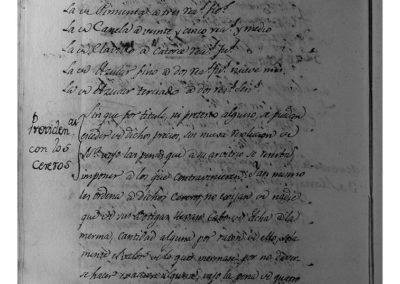 La @ Pimienta, a tres rs. pta.
La @ Canela a veinte y cinco rs. y medio
La @ Clavillo a catorce rs. pta.
La @ Azucar fino a dos rs. pta. nueve ms.
La @ Azucar terciado a dos rs.
Providen
con los
Cereros
Sin que por titulo, ni pretexto alguno, se puedan
exceder de dichos precios, sin nueva resolucion de
vajo las penas que a su arbitrio se reserba
imponer a los que contravinieren, y asi mismo
les ordena a dichos Cereros no exijan de nadie
que de sus Botigas llevare cabos de Acha a la
merma, cantidad alguna por razon de ello, sola
mente el valor de lo que mermare por no dever
se hacer vajo la pena de quatro